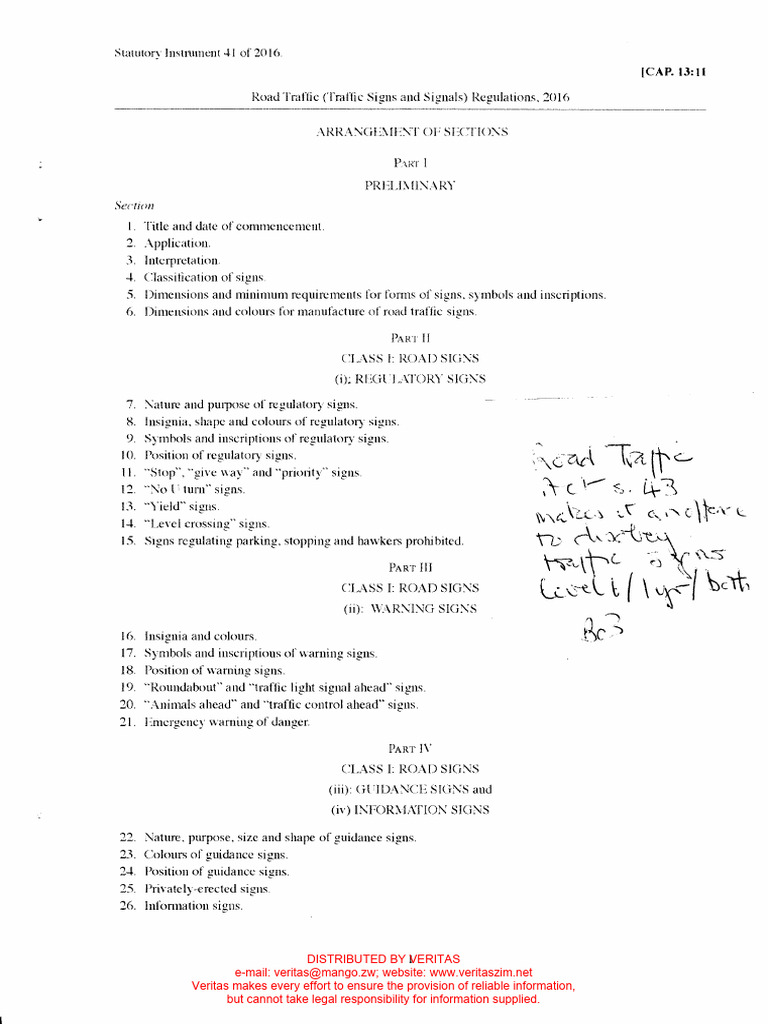 Statutory Instrument 41 of 2016.
[CAP. 13:11
Road Traffic (Traffic Signs and Signals) Regulations, 2016
ARRANGEMENT OF SECTIONS
PART I
PRELIMINARY
Section
1. Title and date of commencement.
2. Application.
3. Interpretation.
4. Classification of signs.
5. Dimensions and minimum requirements for forms of signs, symbols and inscriptions.
6. Dimensions and colours for manufacture of road traffic signs.
PART II
CLASS I: ROAD SIGNS
(i); REGULATORY SIGNS
7. Nature and purpose of regulatory signs.
8. Insignia, shape and colours of regulatory signs.
9. Symbols and inscriptions of regulatory signs.
10. Position of regulatory signs.
11. "Stop", "give way" and "priority" signs.
12. "No U turn" signs.
13. "Yield" signs.
14. "Level crossing" signs.
15. Signs regulating parking, stopping and hawkers prohibited.
Road Traffic
Act s. 43
makes it an offence
to disobey
traffic signs
Level 6/1 yr/both
PART III
CLASS I: ROAD SIGNS
(ii): WARNING SIGNS
16. Insignia and colours.
17. Symbols and inscriptions of warning signs.
18. Position of warning signs.
19. "Roundabout" and "traffic light signal ahead" signs.
20. "Animals ahead" and "traffic control ahead" signs.
21. Emergency warning of danger.
PART IV
CLASS I: ROAD SIGNS
(iii): GUIDANCE SIGNS and
(iv) INFORMATION SIGNS
22. Nature, purpose, size and shape of guidance signs.
23. Colours of guidance signs.
24. Position of guidance signs.
25. Privately-erected signs.
26. Information signs.
DISTRIBUTED BY VERITAS
e-mail: veritas@mango.zw; website: www.veritaszim.net
Veritas makes every effort to ensure the provision of reliable information,
but cannot take legal responsibility for information supplied.